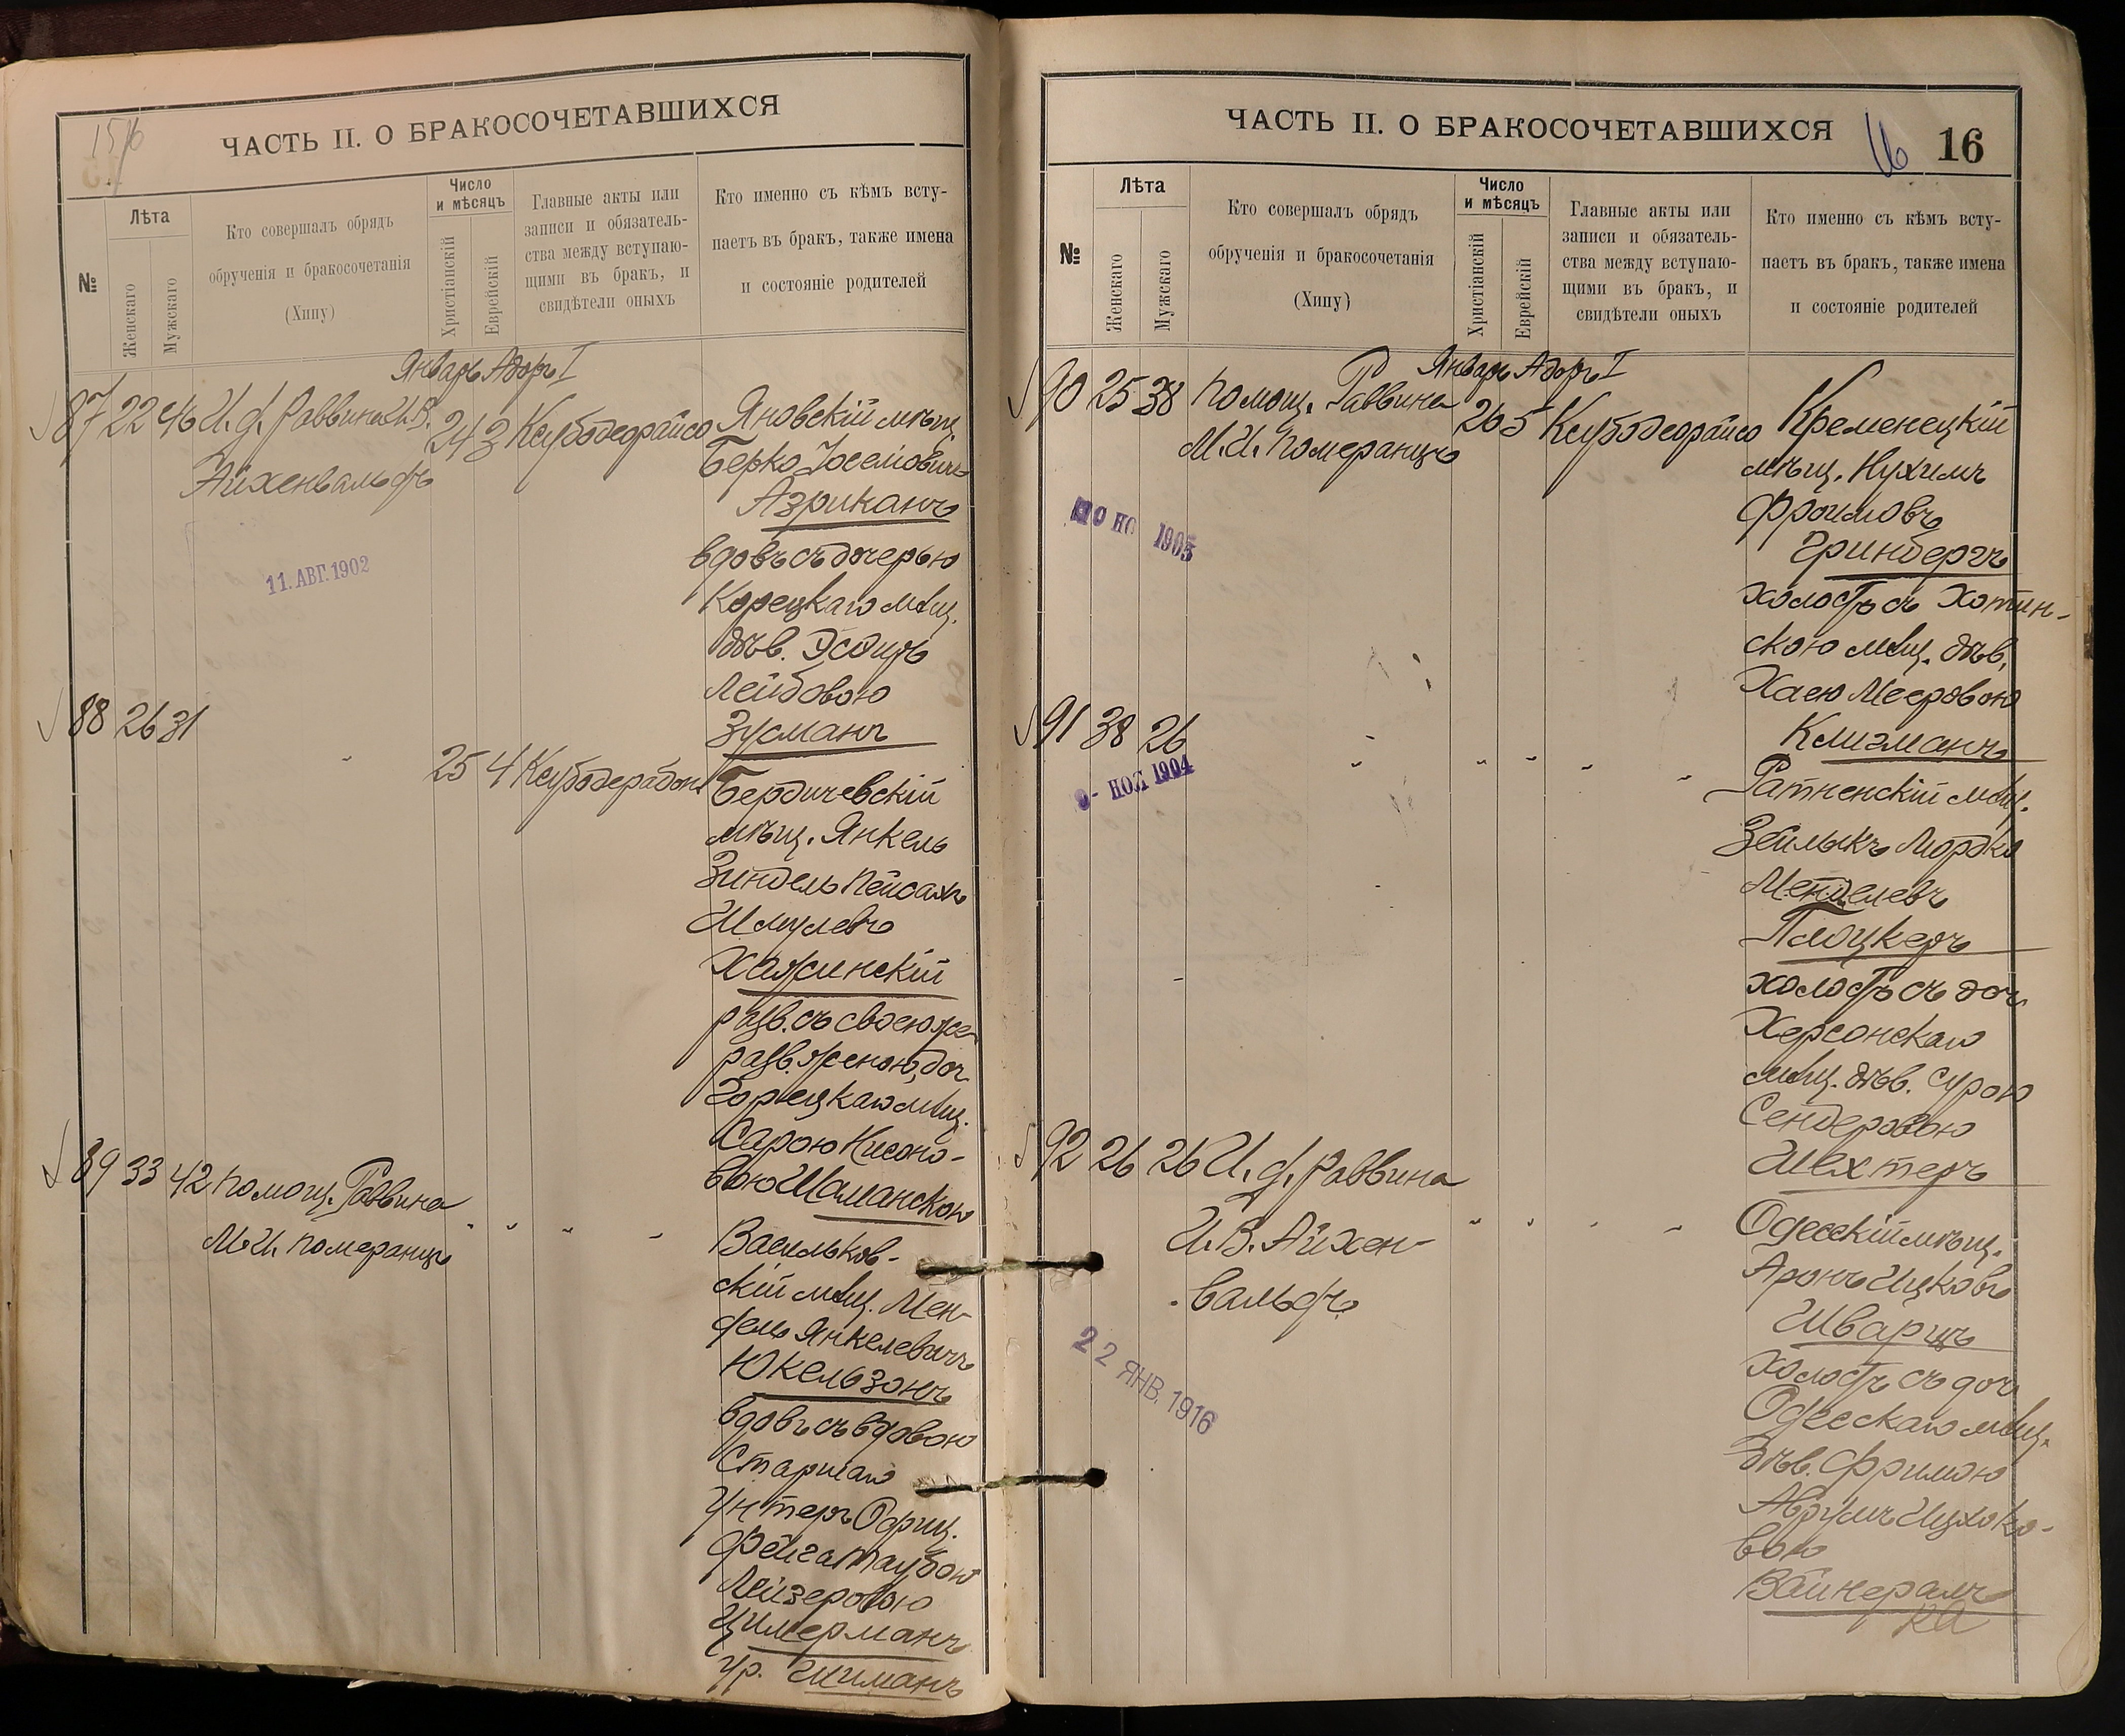 15/16
ЧАСТЬ II. О БРАКОСОЧЕТАВШИХСЯ
№
Лѣта
Женскаго
Мужскаго
Кто совершалъ обрядъ
обрученія и бракосочетанія
(Хипу)
Число
и мѣсяцъ
Христіанскій
Еврейскій
Главные акты или
записи и обязатель-
ства между вступаю-
щими въ бракъ, и
свидѣтели оныхъ
Кто именно съ кѣмъ всту-
паетъ въ бракъ, также имена
и состояніе родителей
Январь Адоръ I
87 22 46 И. д. Раввина И. В.
Айхенвальдъ
24 3 Ксубодеорайсо
Яновскій мѣщ.
Берко Іосейовичъ
Азриканъ
вдовъ съ дочерью
Корецкаго мѣщ.
дѣв. Эсѳирь
Лейбовою
Зусманъ
11. АВГ. 1902
88 26 31
25 4 Ксубодерабонъ
Бердичевскій
мѣщ. Янкель
Зиндель Пейсахъ
Шмулевъ
Хажинскій
разв. съ своею же
разв. женою, доч.
мѣщ.
Сарою Кисоно-
вою Шаманскою
89 33 42 Помощ. Раввина
М. И. Померанцъ
Васильков-
скій мѣщ. Мен-
дель Янкелевичъ
Юкельзонъ
вдовъ съ вдовою
Старшаго
Унтеръ Офиц.
Фейга Таубою
Лейзеровою
Цимерманъ
ур. Шиманъ
ЧАСТЬ II. О БРАКОСОЧЕТАВШИХСЯ
16 16
№
Лѣта
Женскаго
Мужскаго
Кто совершалъ обрядъ
обрученія и бракосочетанія
(Хипу)
Число
и мѣсяцъ
Христіанскій
Еврейскій
Главные акты или
записи и обязатель-
ства между вступаю-
щими въ бракъ, и
свидѣтели оныхъ
Кто именно съ кѣмъ всту-
паетъ въ бракъ, также имена
и состояніе родителей
Январь Адоръ I
90 25 38 Помощ. Раввина
М. И. Померанцъ
26 5 Ксубодеорайсо
Кременецкій
мѣщ. Нухимъ
Фроимовъ
Гринбергъ
холостъ съ Хотин-
скою мѣщ. дѣв.
Хаею Мееровою
Клигманъ
1903
91 38 26
Ратненскій мѣщ.
Зейлыкъ Мордко
Менделевъ
Плоцкеръ
холостъ съ доч.
Херсонскаго
мѣщ. дѣв. Сурою
Сендеровою
Шехтеръ
9- НОЯ 1904
92 26 26 И. д. Раввина
И. В. Айхен-
вальдъ
Одесскій мѣщ.
Аронъ Ицковъ
Шварцъ
холостъ съ доч.
Одесскаго мѣщ.
дѣв. Фримою
Аврумъ Ицхоко-
вою
Вайнерамъ
22 ЯНВ. 1916